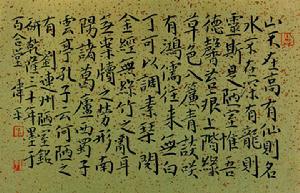 山不在高有仙則名
水不在深有龍則
靈斯是陋室惟吾
德馨苔痕上階綠
草色入簾青談笑
有鴻儒往來無白
丁可以調素琴閱
金經無絲竹之亂耳
無案牘之勞形南
陽諸葛廬西蜀子
雲亭孔子云何陋之
有 劉連州陋室銘
研乾隆三十年墨于
百合堂 偉